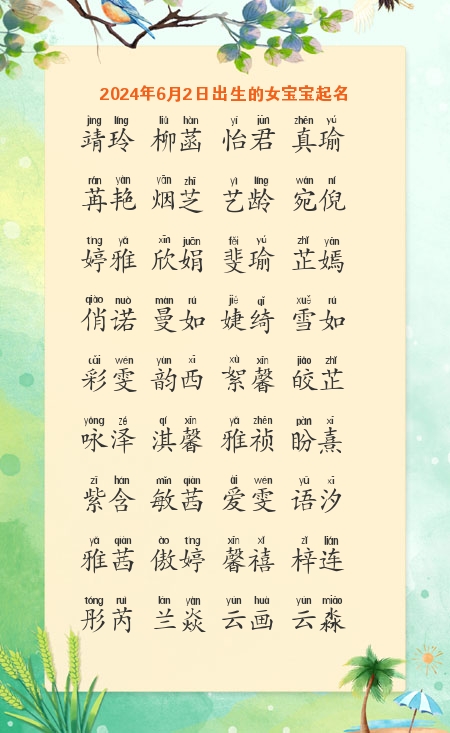 2024年6月2日出生的女宝宝起名
jìng líng liǔ hàn yí jūn zhēn yú
靖玲 柳菡 怡君 真瑜
rǎn yàn yān zhī yì líng wǎn ní
苒艳 烟芝 艺龄 宛倪
tíng yǎ xīn juān fěi yú zhǐ yān
婷雅 欣娟 斐瑜 芷嫣
qiào nuò màn rú jié qǐ xuě rú
俏诺 曼如 婕绮 雪如
cǎi wén yùn xī xù xīn jiǎo zhǐ
彩雯 韵西 絮馨 皎芷
yǒng zé qí xīn yǎ zhēn pàn xī
咏泽 淇馨 雅祯 盼熹
zǐ hán mǐn qiàn ài wén yǔ xī
紫含 敏茜 爱雯 语汐
yǎ qiàn ào tíng xīn xǐ zǐ lián
雅茜 傲婷 馨禧 梓连
tóng ruì lán yàn yún huà yún miǎo
彤芮 兰焱 云画 云淼